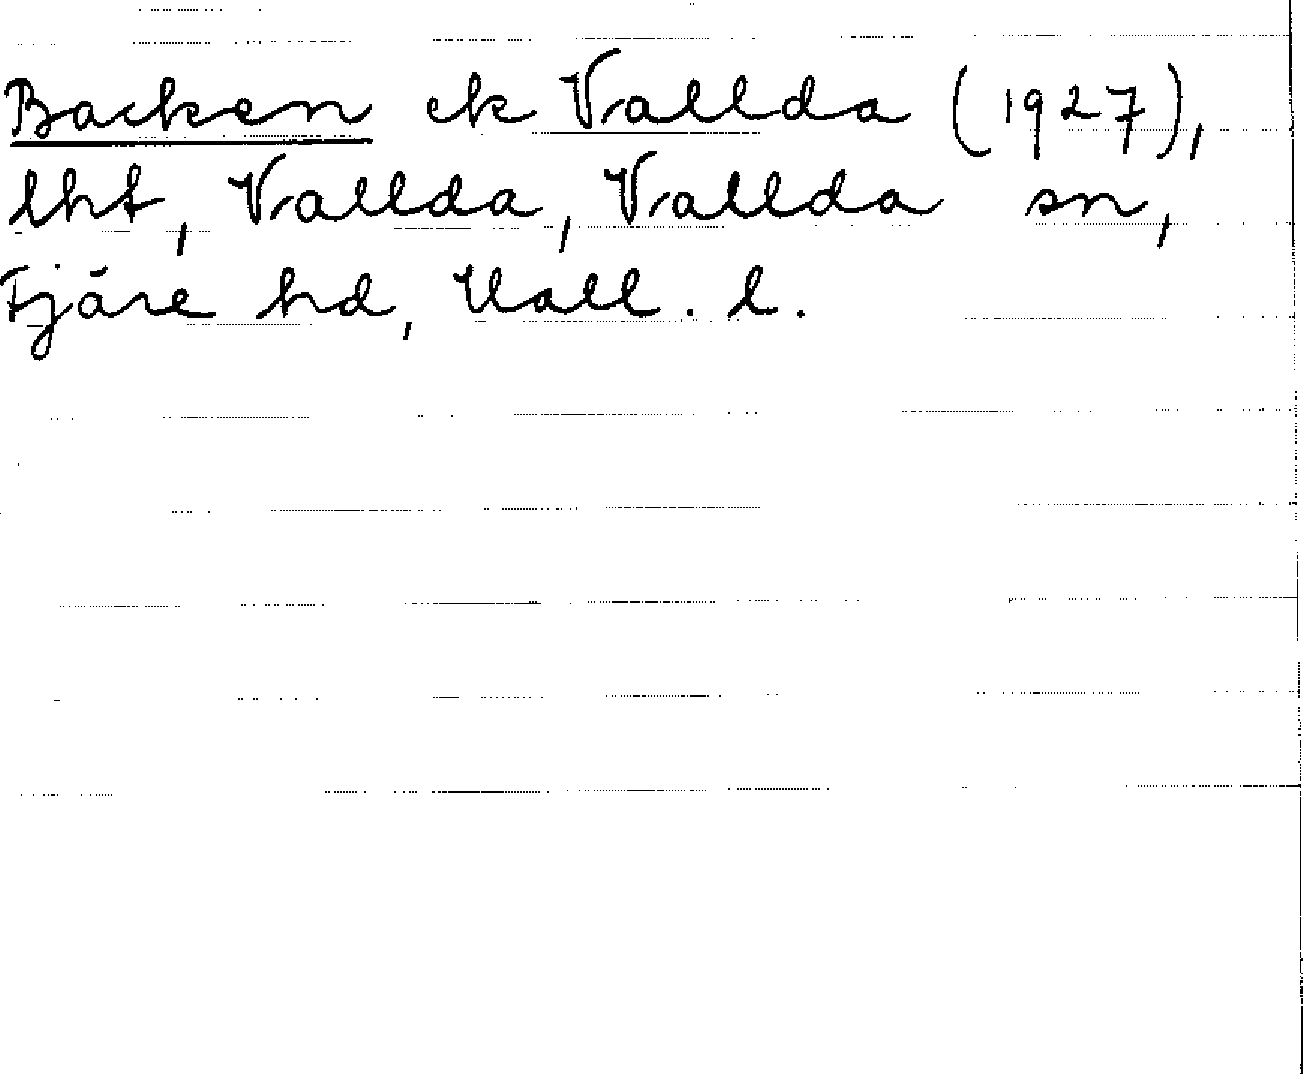 Backen ek Vallda (1927),
lht, Vallda, Vallda sn,
Fjäre hd, Hall. l.